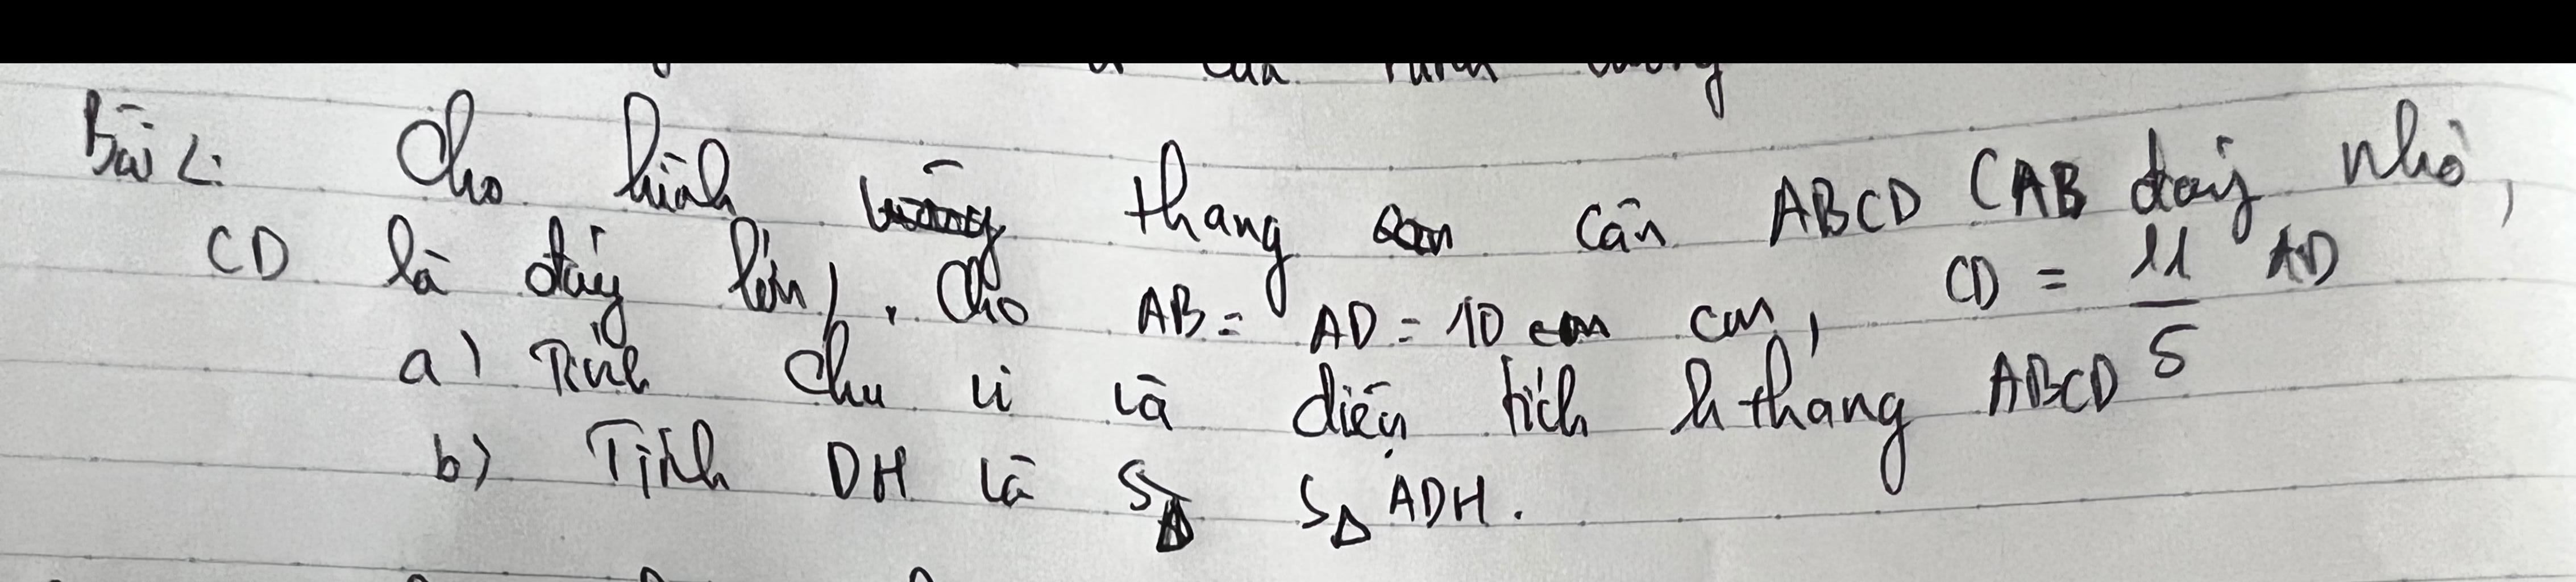 Bài 2: Cho hình thang cân ABCD (AB đáy nhỏ,
CD là đáy lớn). Cho AB = AD = 10 cm, CD = 11/5 AD
a) Tính chu vi và diện tích h thang ABCD
b) Tính DH và S△ ADH.